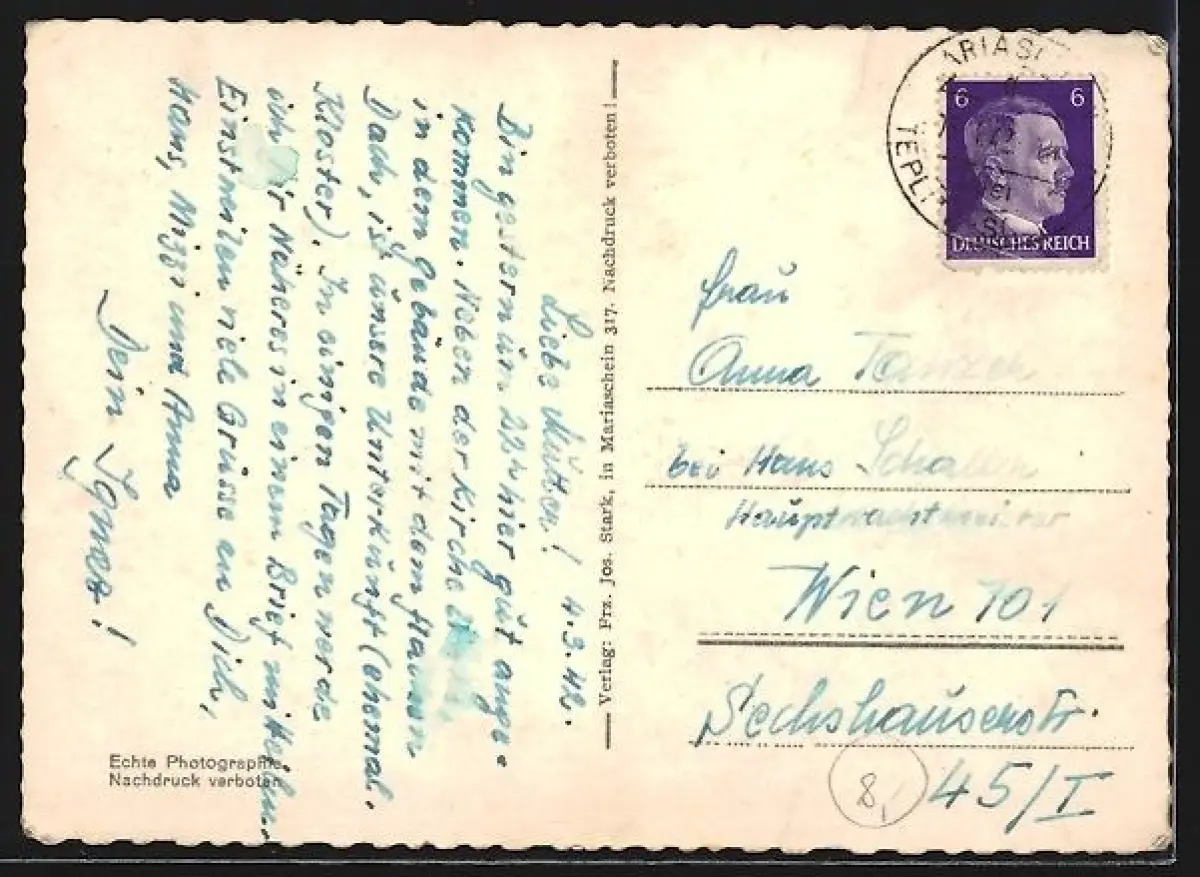 Liebe Mutter! 4.3.42.
Bin gestern um 22h hier gut ange-
kommen. Neben der Kirche
in dem Gebäude mit dem flachen
Dach, ist unsere Unterkunft (ehemal.
Kloster). In einigen Tagen werde
ich Dir Näheres in einem Brief mitteilen.
Einstweilen viele Grüsse an Dich,
Hans, Mizzi und Anna
Dein Ignaz!
Echte Photographie
Nachdruck verboten
Verlag: Frz. Jos. Stark, in Mariaschein 317. Nachdruck verboten!
ARIASC
TEPLI
6 6
DEUTSCHES REICH
Frau
Anna
bei Hans
Hauptwachtmeister
Wien 101
Sechshauserstr.
45/I
8,